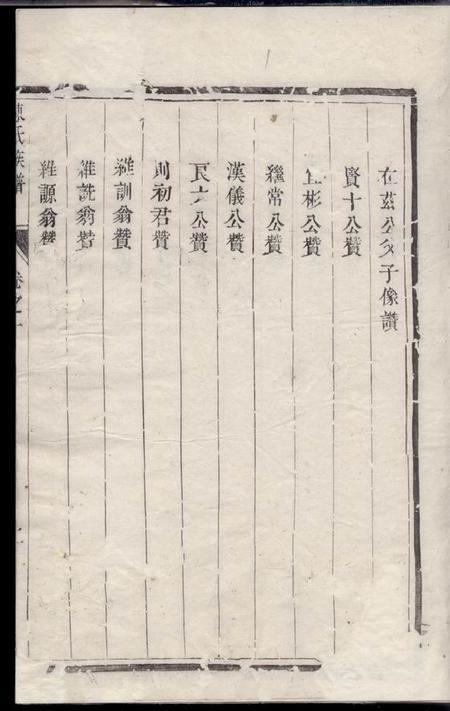 在茲公父子像讚
賢十公贊
彬公贊
繼常公贊
漢儀公贊
公贊
則初君贊
維訓翁贊
維詵翁贊
維源翁贊
陳氏族譜
卷之